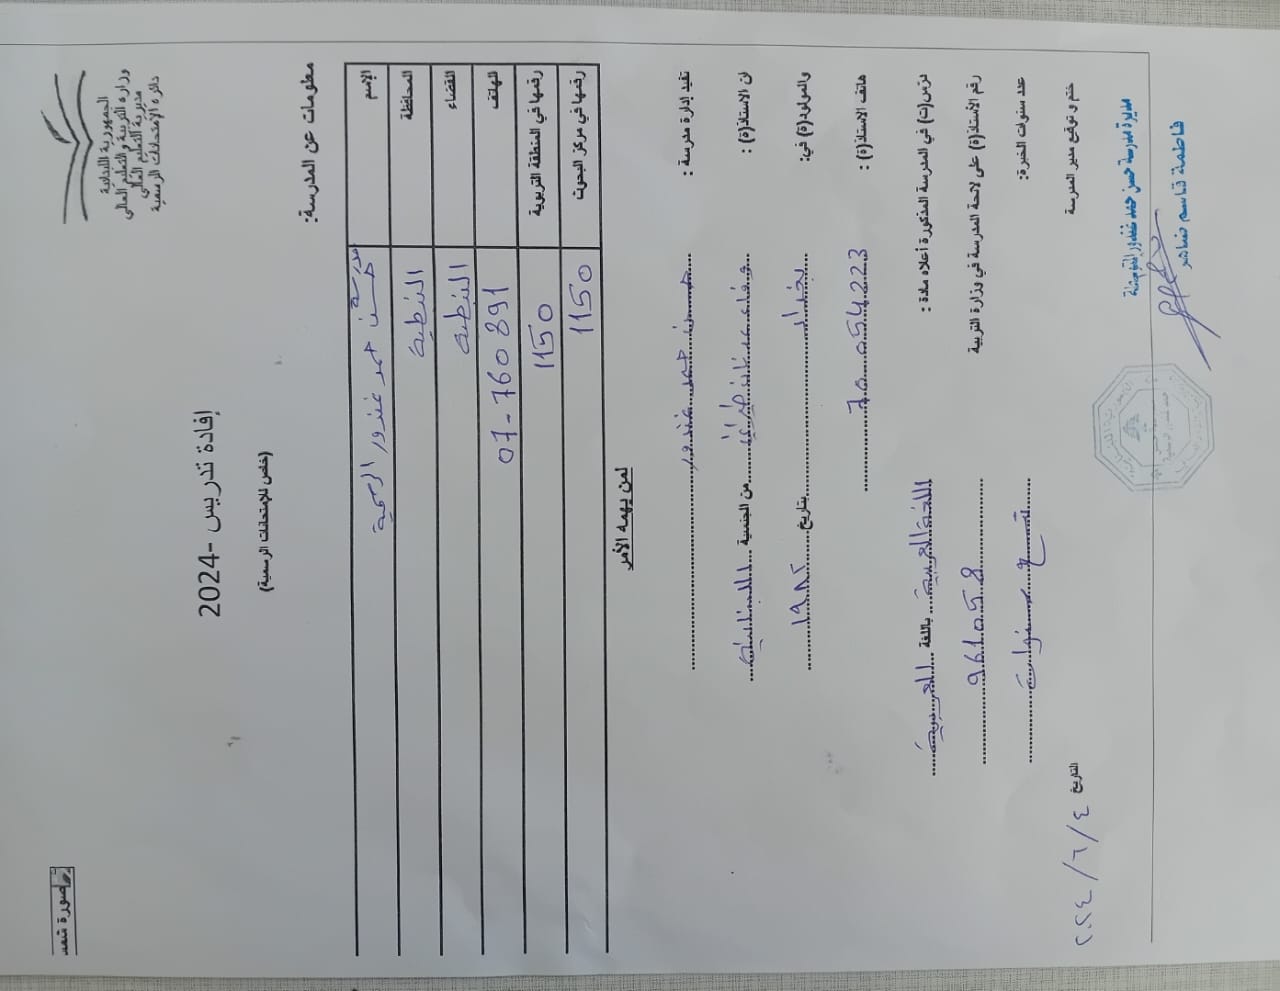 الجمهورية اللبنانية
وزارة التربية والتعليم العالي
مديرية التعليم العالي
دائرة الإمتحانات الرسمية
صورة شمسية
إفادة تدريس -2024
(خاص للإمتحانات الرسمية)
معلومات عن المدرسة:
الإسم مدرسة حسن حمد غندور الرسمية
المحافظة النبطية
القضاء النبطية
الهاتف 07-760891
رقمها في المنطقة التربوية 1150
رقمها في مركز البحوث 1150
لمن يهمه الأمر
تفيد إدارة مدرسة : حسن حمد غندور
ان الاستاذ(ة) : وفاء عدنان من الجنسية اللبنانية
والمولود(ة) في: بتاريخ ١٩٨٢
هاتف الاستاذ(ة) : 70 054223
درس(ت) في المدرسة المذكورة أعلاه مادة : اللغة العربية باللغة العربية
رقم الأستاذ(ة) على لائحة المدرسة في وزارة التربية 961058
عدد سنوات الخبرة: تسع سنوات
ختم و توقيع مدير المدرسة
التاريخ ٢٠٢٤/٦/٤
مديرة مدرسة حسن حمد غندور
فاطمة قاسم